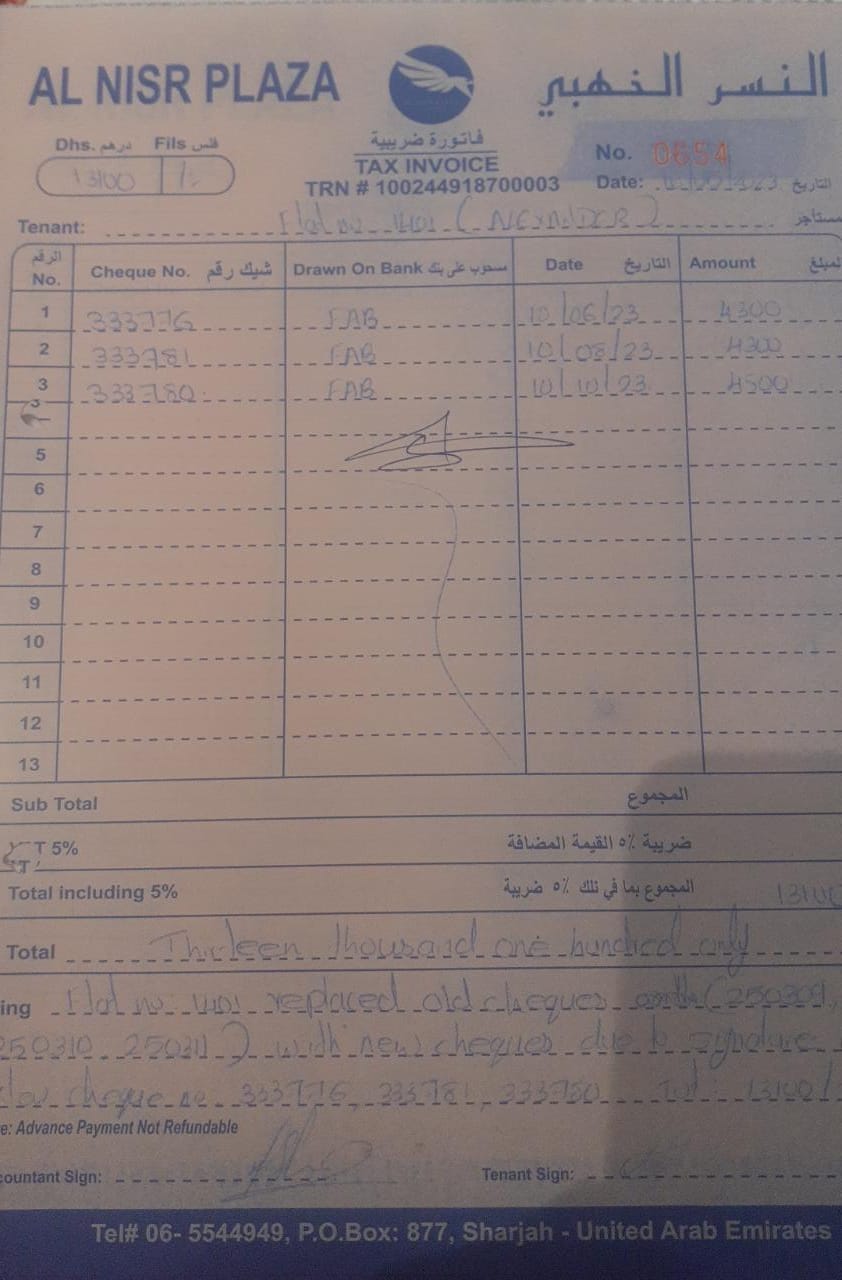 AL NISR PLAZA
النسر الذهبي
Dhs. درهم Fils فلس
13100
فاتورة ضريبية
TAX INVOICE
TRN # 100244918700003
No. 0654
Date: التاريخ
Tenant: Flat no 1401 ( ) مستأجر
الرقم No. Cheque No. شيك رقم Drawn On Bank مسحوب على بنك Date التاريخ Amount لمبلغ
1 333776 FAB 10/06/23 4300
2 333781 FAB 10/08/23 4300
3 333780 FAB 10/10/23 4500
5
6
7
8
9
10
11
12
13
Sub Total المجموع
T 5% ضريبة ٥٪ القيمة المضافة
Total including 5% المجموع بما في ذلك ٥٪ ضريبة 13100
Total Thirteen thousand one hundred only
ing Flat no 1401 replaced old cheques (250309,
250310, 250311) with new cheques due to signature
cheque no 333776, 333781, 333780 Tot: 13100/
e: Advance Payment Not Refundable
countant Sign: Tenant Sign:
Tel# 06- 5544949, P.O.Box: 877, Sharjah - United Arab Emirates